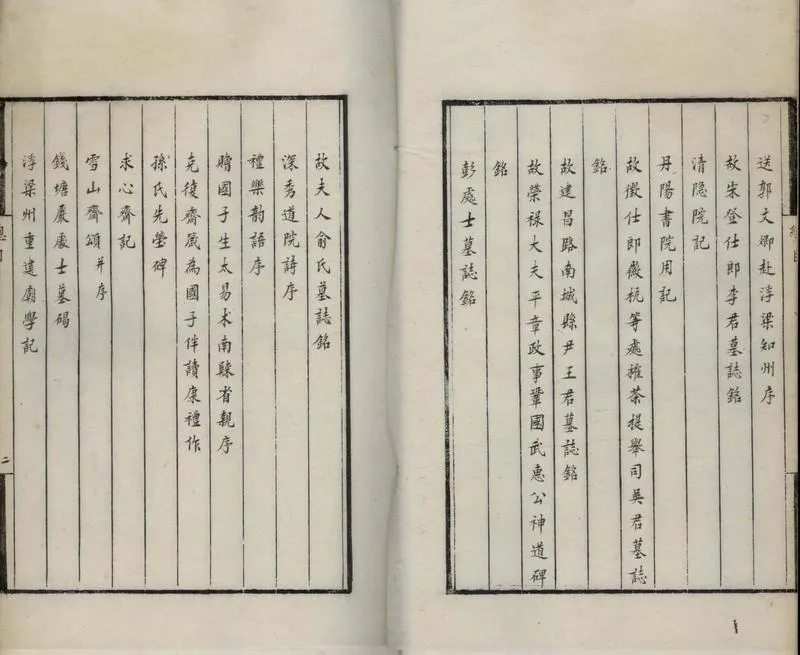 送郭文卿赴浮梁知州序
故宋登仕郎李君墓誌銘
清隱院記
丹陽書院用記
故徵仕郎徽杭等處榷茶提舉司吳君墓誌
銘
故建昌路南城縣尹王君墓誌銘
故榮祿大夫平章政事鞏國武惠公神道碑
銘
彭處士墓誌銘
故夫人俞氏墓誌銘
深秀道院詩序
禮樂韵語序
贈國子生太易术南歸省親序
克復齋箴為國子伴讀康禮作
孫氏先塋碑
求心齋記
雪山齋頌并序
錢塘嚴處士墓碣
浮梁州重建廟學記
總目
二